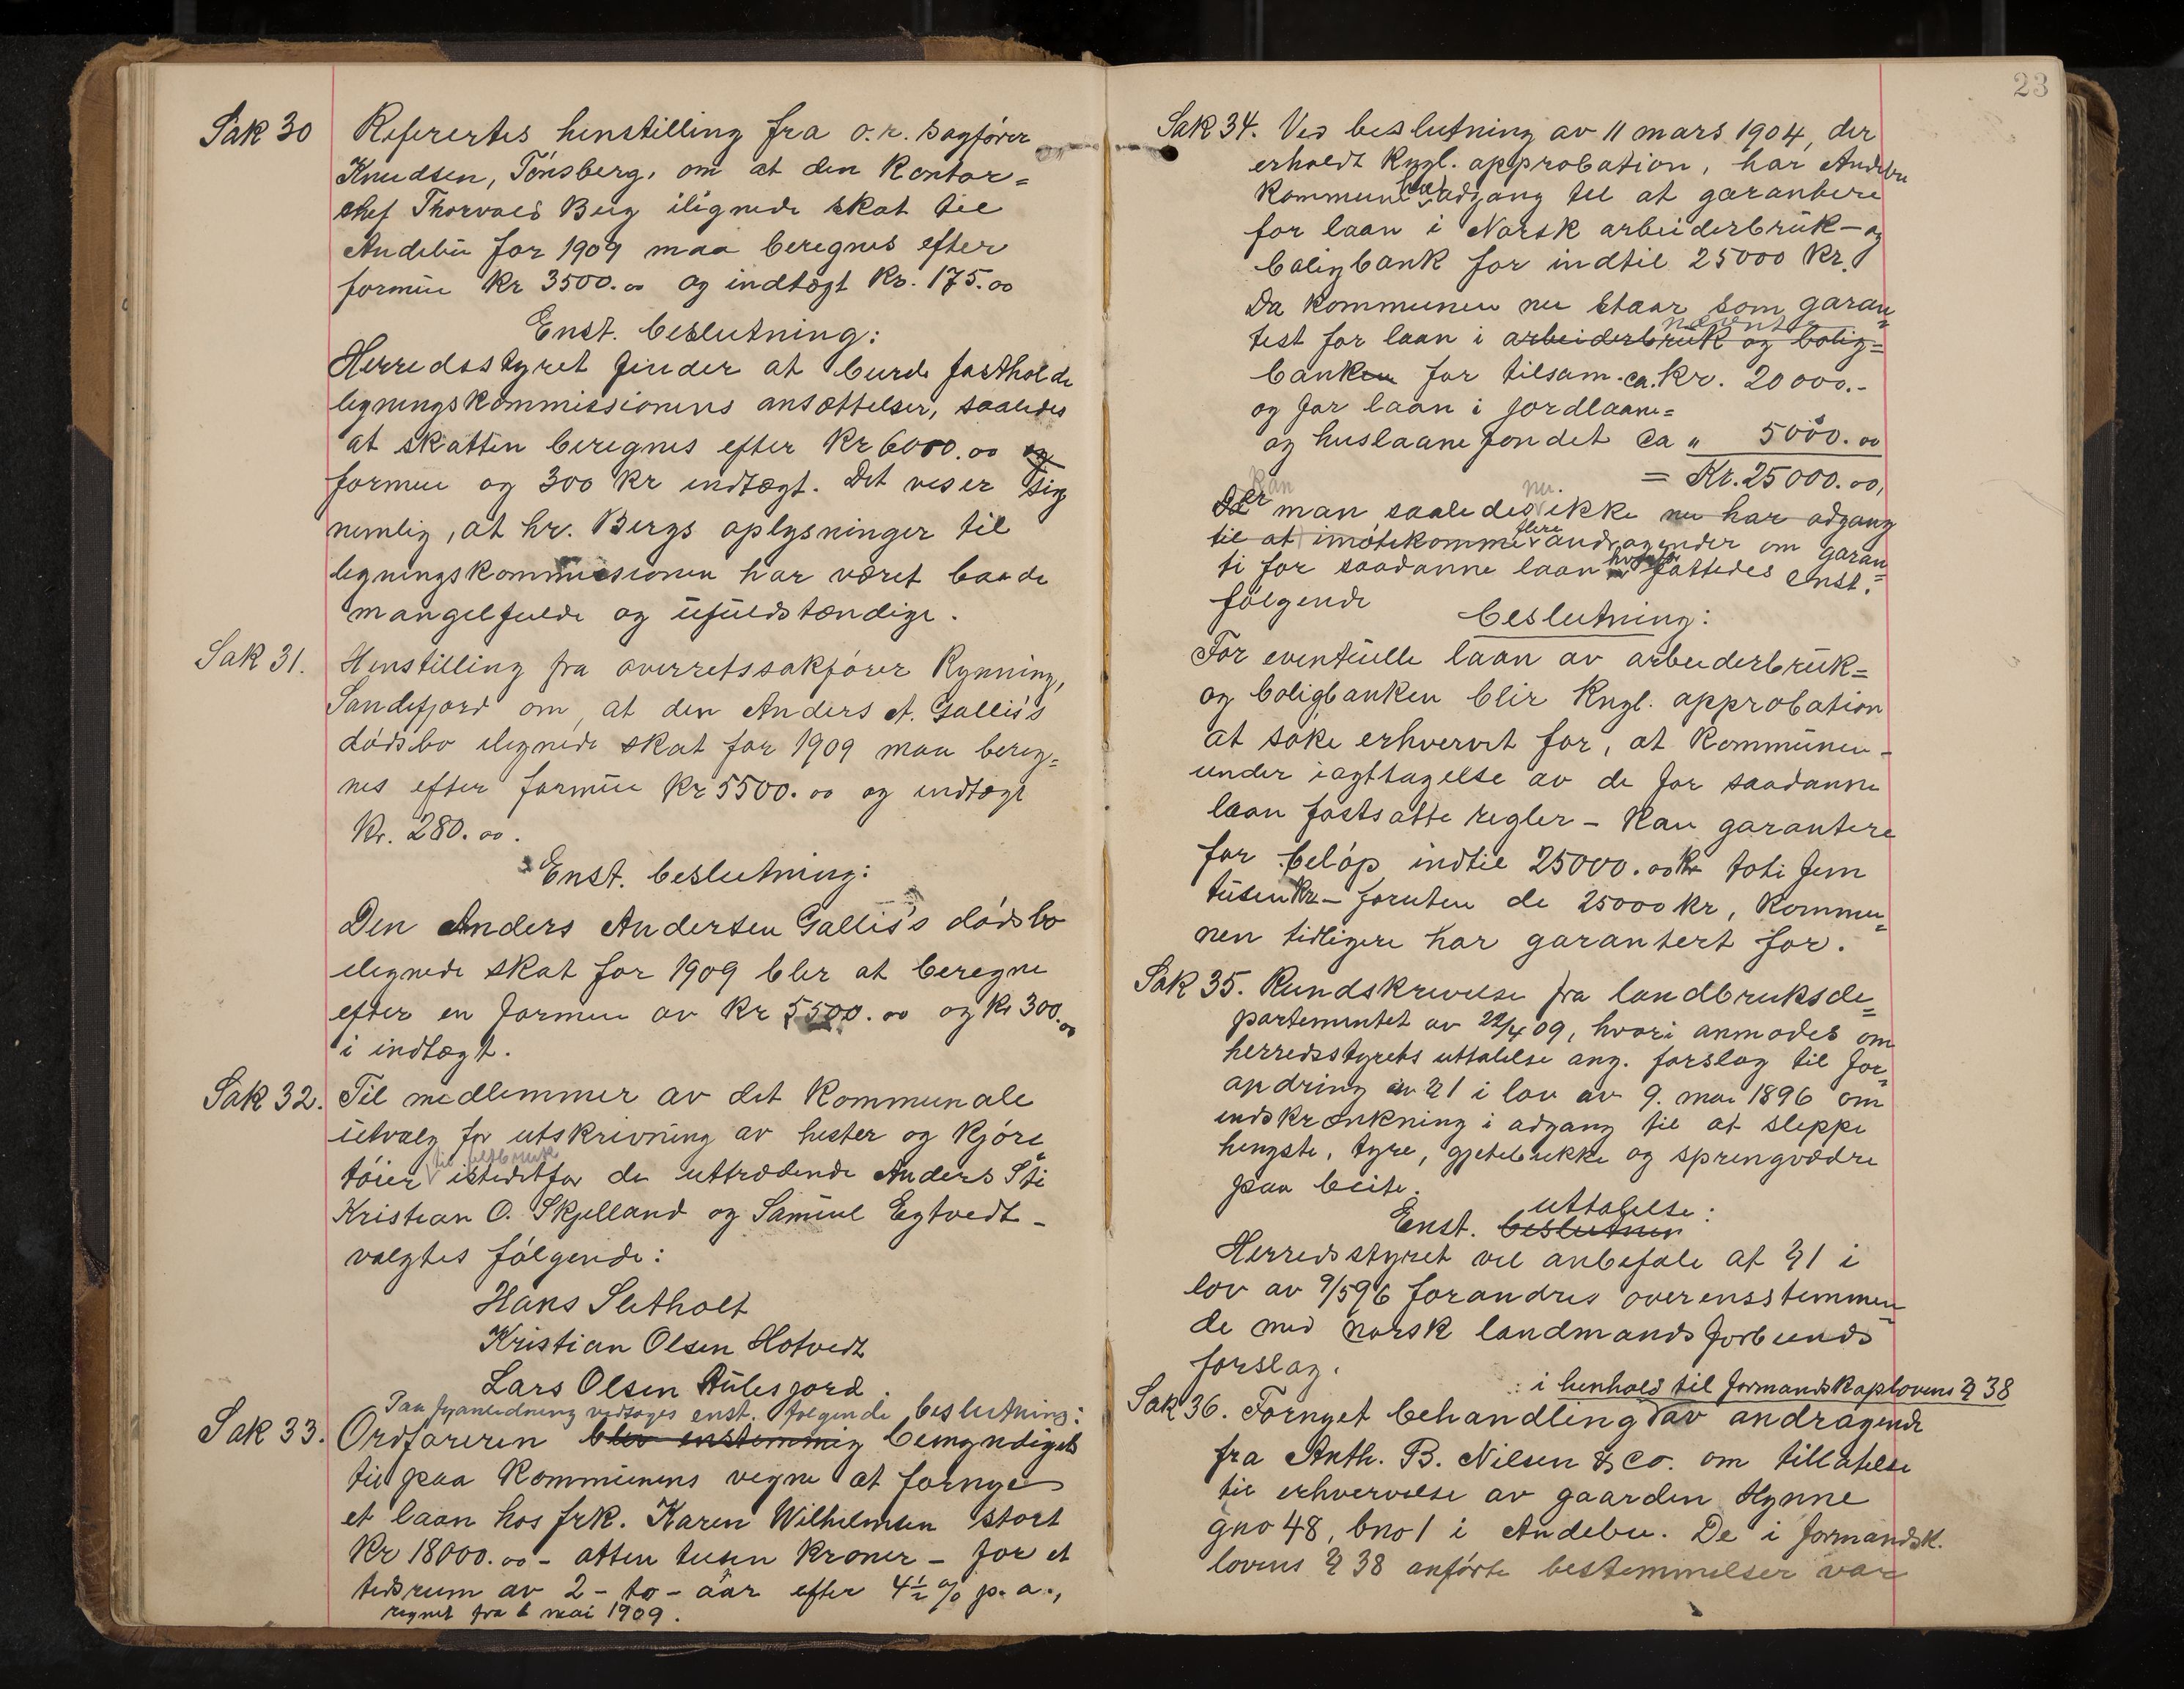 Sak 30 Refertes henstilling fra o.r. sagfører
Knudsen, Tønsberg, om at den kontor=
chef Thorvald Berg ilignede skat til
Andebu for 1909 maa beregnes efter
formue kr 3500.00 og indtægt kr. 175.00
Enst. beslutning:
Herredsstyret finder at burde fastholde
ligningskommissionens ansættelser, saaledes
at skatten beregnes efter kr 6000.00
formue og 300 kr indtægt. Det viser sig
nemlig, at hr. Bergs oplysninger til
ligningskommissionen har været baade
mangelfulde og ufuldstændige.
Sak 31. Henstilling fra overretssakfører Rynning,
Sandefjord om, at den Anders A. Gallis's
dødsbo ilignede skat for 1909 maa bereg=
nes efter formue kr 5500.00 og indtægt
kr. 280.00.
Enst. beslutning:
Den Anders Andersen Gallis's dødsbo
ilignede skat for 1909 blir at beregne
efter en formue av kr 5500.00 og kr 300.00
i indtægt.
Sak 32. Til medlemmer av det kommunale
utvalg for utskrivning av hester og kjøre=
til feltbruk
tøier istedetfor de uttrædende Anders Sti
Kristian O. Skjelland og Samuel Egtvedt -
valgtes følgende:
Hans Sletholt
Kristian Olsen Hotvedt
Lars Olsen Aulesjord.
Paa foranledning vedtoges enst. følgende beslutning:
Sak 33. Ordføreren blev enstemmig bemyndiges
til paa kommunens vegne at fornye
et laan hos frk. Karen Wilhelmsen stort
kr 18000.00 - atten tusen kroner - for et
tidsrum av 2 - to - aar efter 4½ % p.a.,
regnet fra 6 mai 1909.
23
Sak 34. Ved beslutning av 11 mars 1904, der
erholdt kngl. approbation, har Andebu
kommune hat adgang til at garantere
for laan i Norsk arbeiderbruk - og
boligbank for indtil 25000 kr.
Da kommunen nu staar som garan=
nævnte
tist for laan i arbeiderbruk og bolig=
banken for tilsam. ca. kr. 20000.-
og for laan i jordlaane=
og huslaanefondet ca " 5000.00
= Kr. 25000.00,
kan nu.
er man saaledes ikke nu har adgang
flere
til at imøtekomme andragender om garan=
ti for saadanne laan hvorfor fattedes enst.
følgende
beslutning:
For eventuelle laan av arbeiderbruk=
og boligbanken blir kngl. approbation
at søke erhvervet for, at kommunen -
under iagttagelse av de for saadanne
laan fastsatte regler - kan garantere
for beløp indtil 25000.00 kr toti fem
tusen kr - foruten de 25000 kr, kommu=
nen tidligere har garantert for.
Sak 35. Rundskrivelse fra landbruksde=
partementet av 22/4 09, hvori anmodes om
herredsstyrets uttalelse ang. forslag til for=
andring av § 1 i lov av 9. mai 1896 om
indskrænkning i adgang til at sleppe
hengste, tyre, gjetebukke og sprengvædre
paa beite.
uttalelse:
Enst. beslutnin
Herredsstyret vil anbefale at § 1 i
lov av 9/5 96 forandres overensstemmen=
de med norsk landmandsforbunds
forslag.
i henhold til formandskapslovens § 38
Sak 36. Fornyet behandling av andragende
fra Anth. B. Nilsen & Co. om tillatelse
til erhvervelse av gaarden Hynne
gno 48, bno 1 i Andebu. De i formandsk.
lovens § 38 anførte bestemmelser var